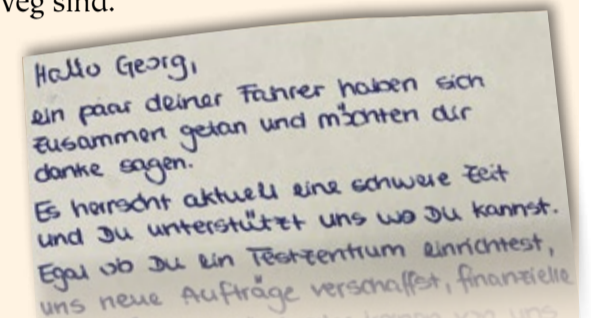 veg sind.
Hallo Georg,
ein paar deiner Fahrer haben sich
zusammen getan und möchten dir
danke sagen.
Es herrscht aktuell eine schwere Zeit
und Du unterstützt uns wo Du kannst.
Egal ob Du ein Testzentrum einrichtest,
uns neue Aufträge verschaffst, finanzielle
von uns